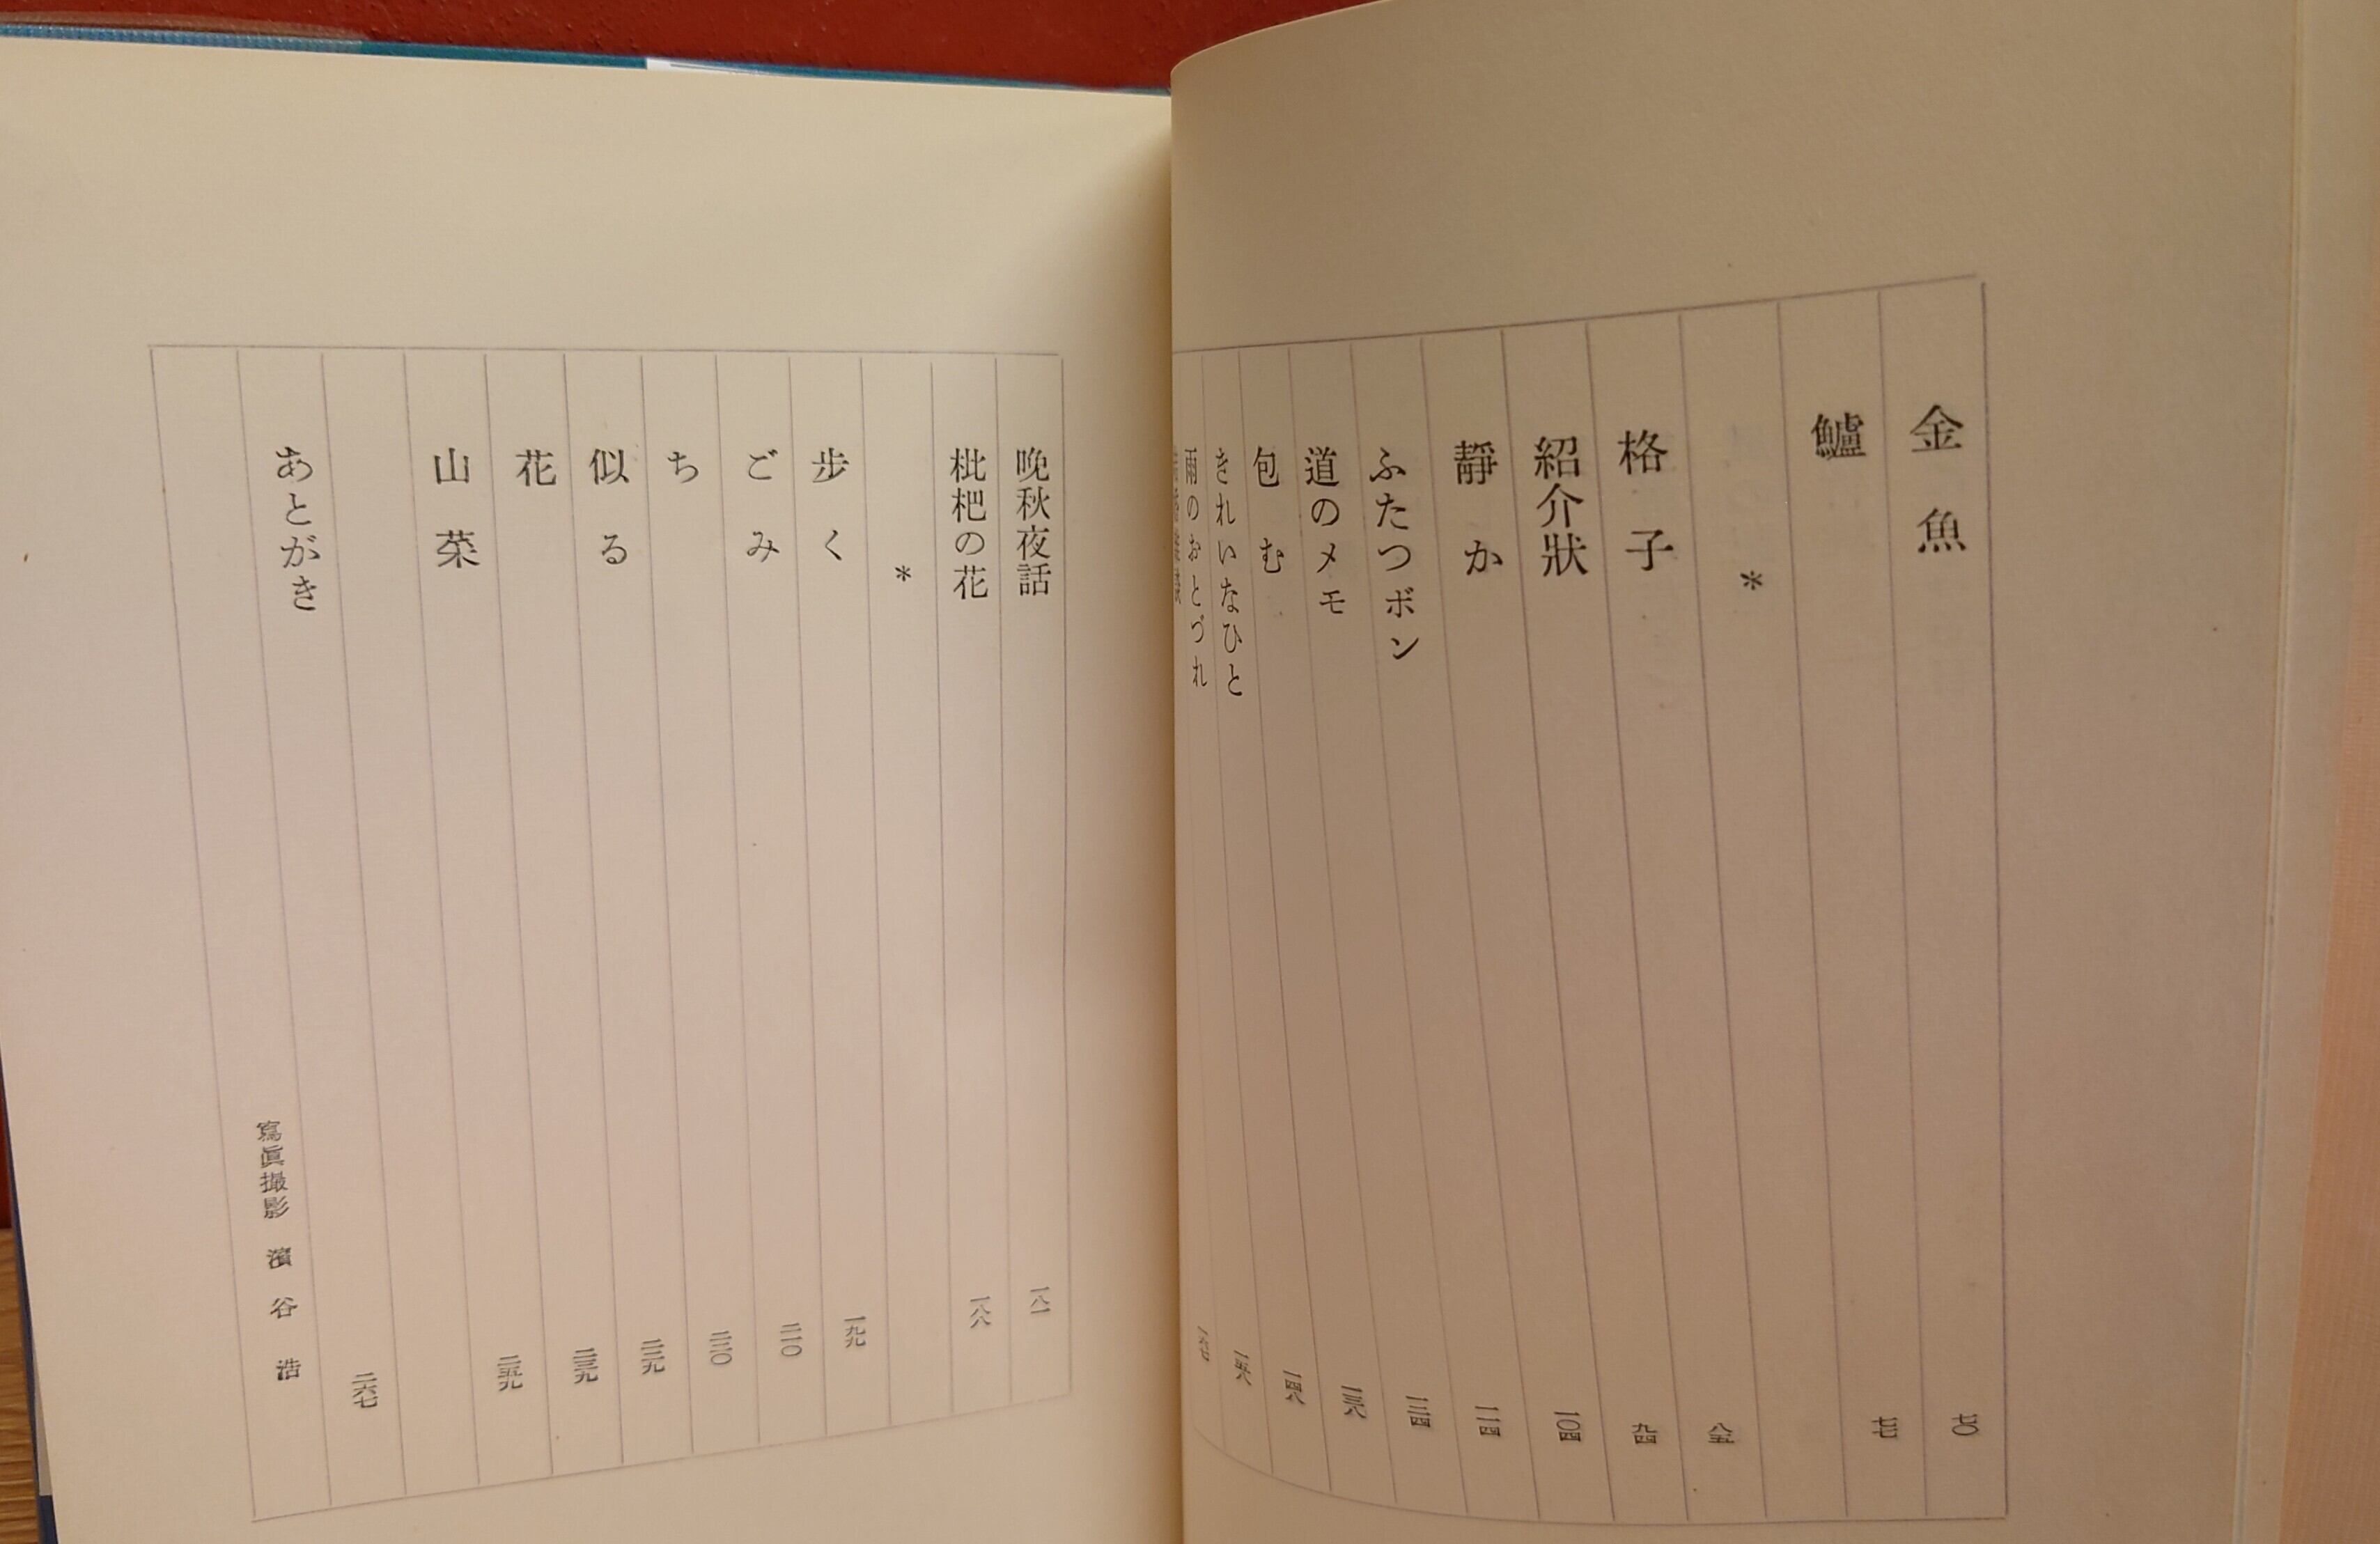 金魚 七〇
鱸 七七
＊
格子 八五
紹介狀 九四
靜か 一〇四
ふたつボン 一一四
道のメモ 一二四
包む 一三八
きれいなひと 一四八
雨のおとづれ 一五八
一六七
晩秋夜話 一八一
枇杷の花 一八八
＊
歩く 一九九
ごみ 二一〇
ち 二二〇
似る 二二九
花 二三九
山菜 二五九
あとがき 二六七
寫眞撮影 濱谷浩